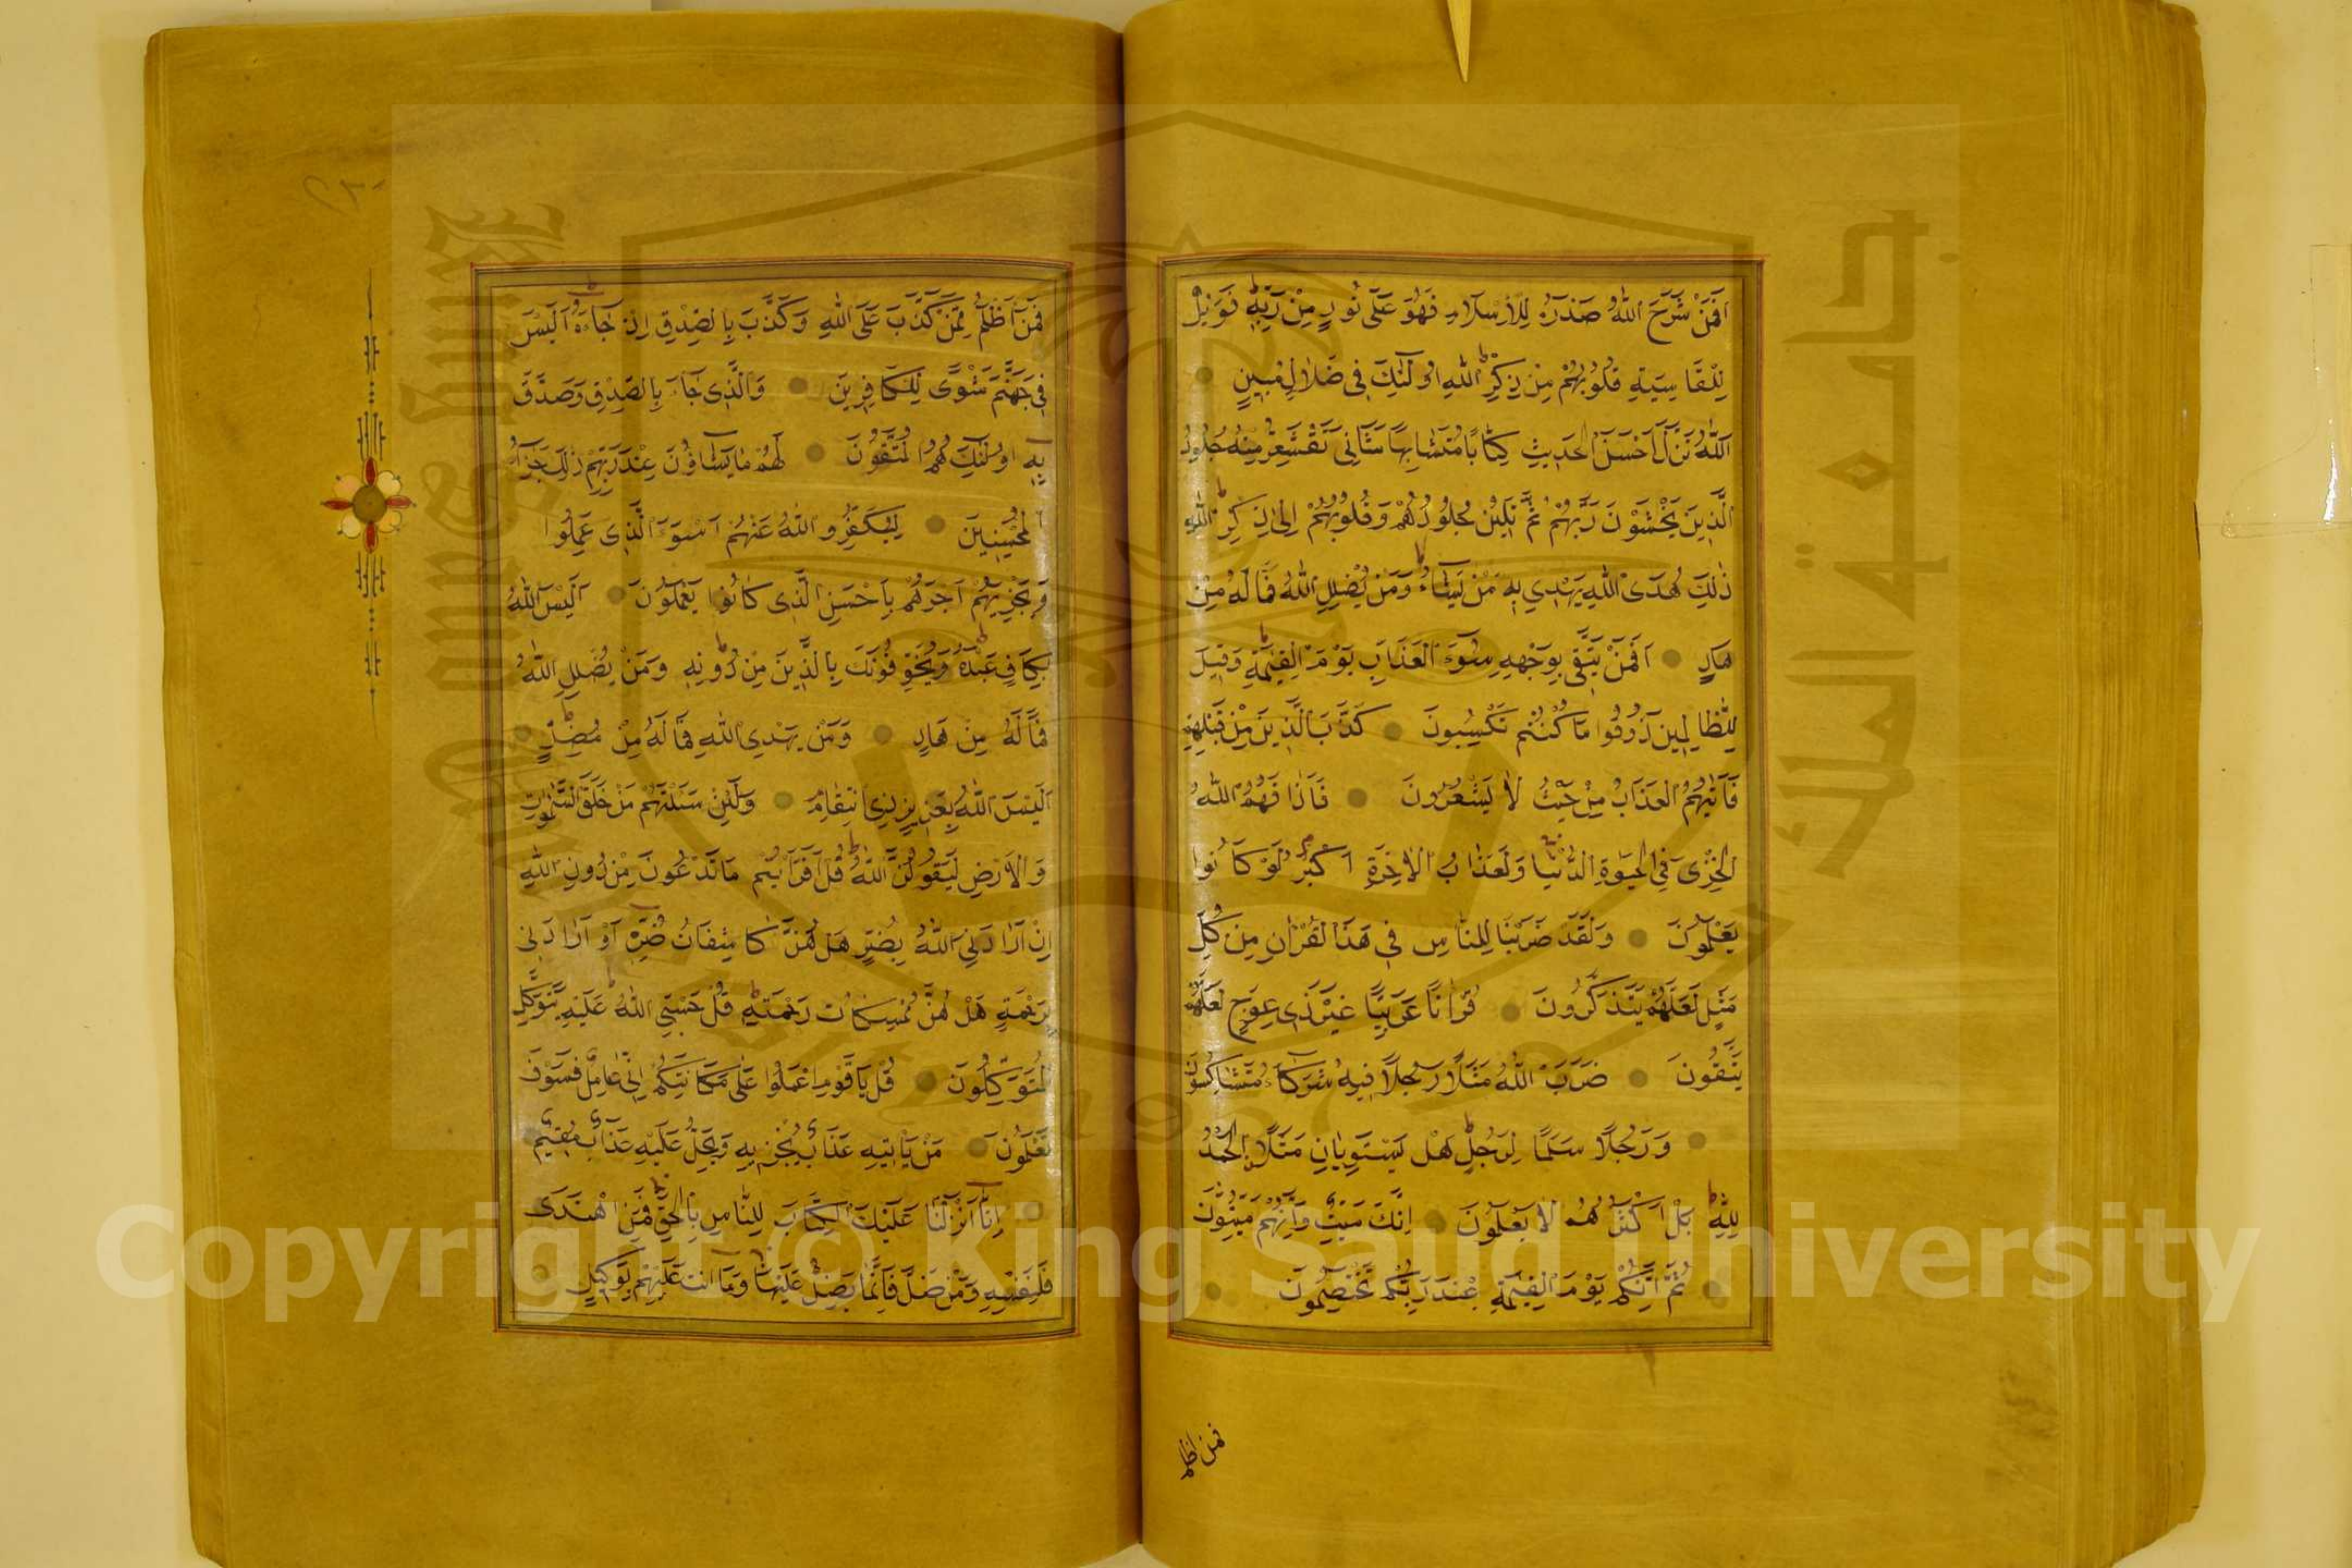 اَفَمَنْ شَرَحَ اللّٰهُ صَدْرَهُ لِلْاِسْلَامِ فَهُوَ عَلٰى نُورٍ مِنْ رَبِّهٖ فَوَيْلٌ
لِلْقَاسِيَةِ قُلُوبُهُمْ مِنْ ذِكْرِ اللّٰهِ اُولٰئِكَ فِى ضَلَالٍ مُبِينٍ
اَللّٰهُ نَزَّلَ اَحْسَنَ الْحَدِيثِ كِتَابًا مُتَشَابِهًا مَثَانِىَ تَقْشَعِرُّ مِنْهُ جُلُودُ
الَّذِينَ يَخْشَوْنَ رَبَّهُمْ ثُمَّ تَلِينُ جُلُودُهُمْ وَقُلُوبُهُمْ اِلٰى ذِكْرِ اللّٰهِ
ذٰلِكَ هُدَى اللّٰهِ يَهْدِى بِهٖ مَنْ يَشَاءُ وَمَنْ يُضْلِلِ اللّٰهُ فَمَا لَهُ مِنْ
هَادٍ اَفَمَنْ يَتَّقِى بِوَجْهِهِ سُوٓءَ الْعَذَابِ يَوْمَ الْقِيٰمَةِ وَقِيلَ
لِلظَّالِمِينَ ذُوقُوا مَا كُنْتُمْ تَكْسِبُونَ كَذَّبَ الَّذِينَ مِنْ قَبْلِهِمْ
فَاَتٰيهُمُ الْعَذَابُ مِنْ حَيْثُ لَا يَشْعُرُونَ فَاَذَاقَهُمُ اللّٰهُ
الْخِزْىَ فِى الْحَيٰوةِ الدُّنْيَا وَلَعَذَابُ الْاٰخِرَةِ اَكْبَرُ لَوْ كَانُوا
يَعْلَمُونَ وَلَقَدْ ضَرَبْنَا لِلنَّاسِ فِى هٰذَا الْقُرْاٰنِ مِنْ كُلِّ
مَثَلٍ لَعَلَّهُمْ يَتَذَكَّرُونَ قُرْاٰنًا عَرَبِيًّا غَيْرَ ذِى عِوَجٍ لَعَلَّهُمْ
يَتَّقُونَ ضَرَبَ اللّٰهُ مَثَلًا رَجُلًا فِيهِ شُرَكَاءُ مُتَشَاكِسُونَ
وَرَجُلًا سَلَمًا لِرَجُلٍ هَلْ يَسْتَوِيَانِ مَثَلًا اَلْحَمْدُ
لِلّٰهِ بَلْ اَكْثَرُهُمْ لَا يَعْلَمُونَ اِنَّكَ مَيِّتٌ وَاِنَّهُمْ مَيِّتُونَ
ثُمَّ اِنَّكُمْ يَوْمَ الْقِيٰمَةِ عِنْدَ رَبِّكُمْ تَخْتَصِمُونَ
فمن اظلم
فَمَنْ اَظْلَمُ مِمَّنْ كَذَبَ عَلَى اللّٰهِ وَكَذَّبَ بِالصِّدْقِ اِذْ جَاءَهُ اَلَيْسَ
فِى جَهَنَّمَ مَثْوًى لِلْكَافِرِينَ وَالَّذِى جَاءَ بِالصِّدْقِ وَصَدَّقَ
بِهٖ اُولٰئِكَ هُمُ الْمُتَّقُونَ لَهُمْ مَا يَشَاؤُنَ عِنْدَ رَبِّهِمْ ذٰلِكَ جَزَاءُ
الْمُحْسِنِينَ لِيُكَفِّرَ اللّٰهُ عَنْهُمْ اَسْوَءَ الَّذِى عَمِلُوا
وَيَجْزِيَهُمْ اَجْرَهُمْ بِاَحْسَنِ الَّذِى كَانُوا يَعْمَلُونَ اَلَيْسَ اللّٰهُ
بِكَافٍ عَبْدَهُ وَيُخَوِّفُونَكَ بِالَّذِينَ مِنْ دُونِهٖ وَمَنْ يُضْلِلِ اللّٰهُ
فَمَا لَهُ مِنْ هَادٍ وَمَنْ يَهْدِى اللّٰهُ فَمَا لَهُ مِنْ مُضِلٍّ
اَلَيْسَ اللّٰهُ بِعَزِيزٍ ذِى انْتِقَامٍ وَلَئِنْ سَئَلْتَهُمْ مَنْ خَلَقَ السَّمٰوَاتِ
وَالْاَرْضَ لَيَقُولُنَّ اللّٰهُ قُلْ اَفَرَاَيْتُمْ مَا تَدْعُونَ مِنْ دُونِ اللّٰهِ
اِنْ اَرَادَنِىَ اللّٰهُ بِضُرٍّ هَلْ هُنَّ كَاشِفَاتُ ضُرِّهٖ اَوْ اَرَادَنِى
بِرَحْمَةٍ هَلْ هُنَّ مُمْسِكَاتُ رَحْمَتِهٖ قُلْ حَسْبِىَ اللّٰهُ عَلَيْهِ يَتَوَكَّلُ
الْمُتَوَكِّلُونَ قُلْ يَا قَوْمِ اعْمَلُوا عَلٰى مَكَانَتِكُمْ اِنِّى عَامِلٌ فَسَوْفَ
تَعْلَمُونَ مَنْ يَاْتِيهِ عَذَابٌ يُخْزِيهِ وَيَحِلُّ عَلَيْهِ عَذَابٌ مُقِيمٌ
اِنَّا اَنْزَلْنَا عَلَيْكَ الْكِتَابَ لِلنَّاسِ بِالْحَقِّ فَمَنِ اهْتَدٰى
فَلِنَفْسِهٖ وَمَنْ ضَلَّ فَاِنَّمَا يَضِلُّ عَلَيْهَا وَمَا اَنْتَ عَلَيْهِمْ بِوَكِيلٍ
جامعة الملك سعود
King Saud University
1957
Copyright © King Saud University